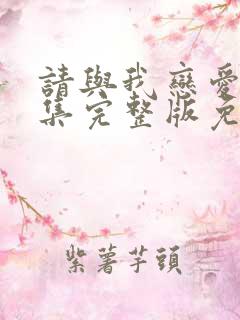 請與我戀愛
集完整版免
紫薯芋頭